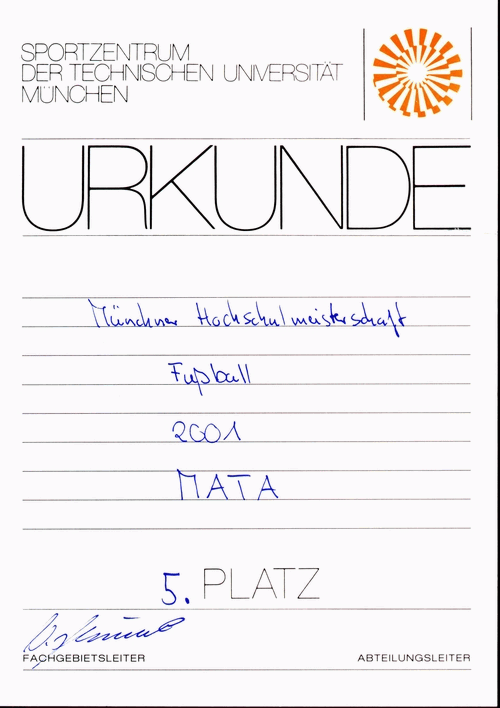 SPORTZENTRUM
DER TECHNISCHEN UNIVERSITÄT
MÜNCHEN
URKUNDE
Münchner Hochschulmeisterschaft
Fußball
2001
MATA
5. PLATZ
FACHGEBIETSLEITER ABTEILUNGSLEITER